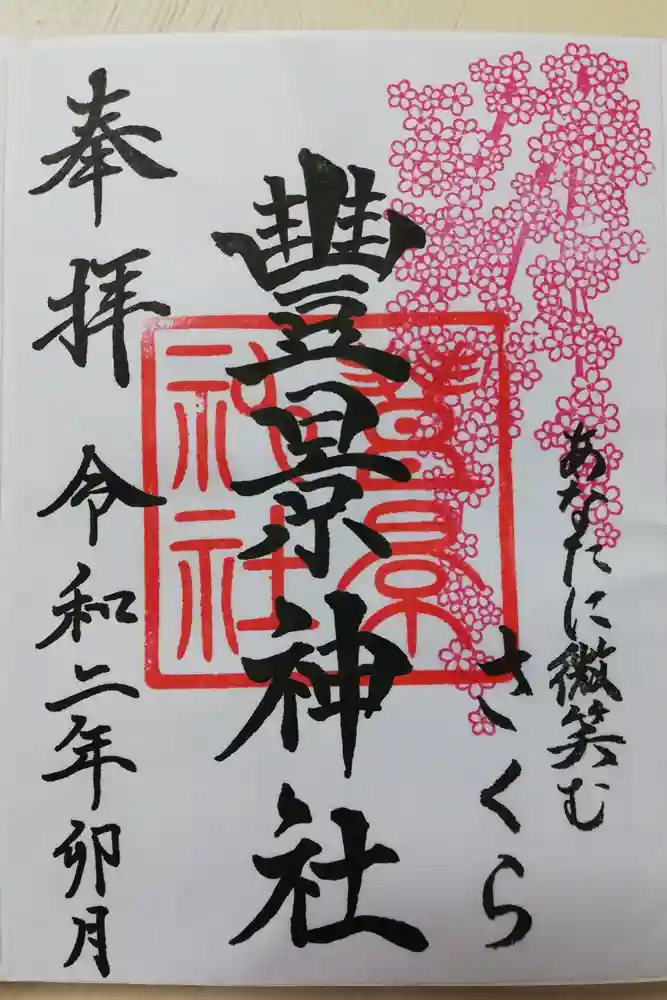 あなたに微笑む
さくら
豐景神社
豊景
神社
奉拝
令和二年卯月